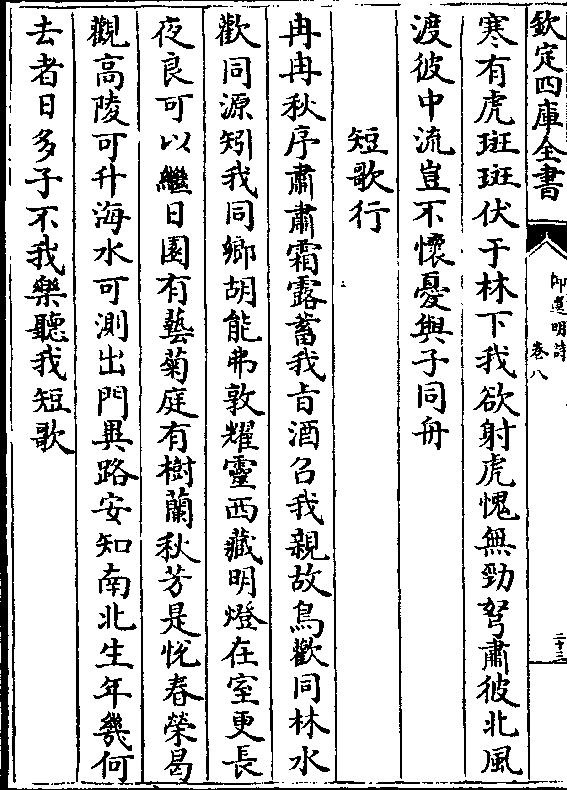 欽定四庫全書
御選明詩
卷八
二十三
寒有虎斑斑伏于林下我欲射虎愧無勁弩肅彼北風
渡彼中流豈不懷憂與子同舟
短歌行
冉冉秋序肅肅霜露蓄我旨酒召我親故鳥歡同林水
歡同源矧我同鄉胡能弗敦耀靈西藏明燈在室更長
夜良可以繼日園有藝菊庭有樹蘭秋芳是悅春榮曷
觀高陵可升海水可測出門異路安知南北生年幾何
去者日多子不我樂聽我短歌